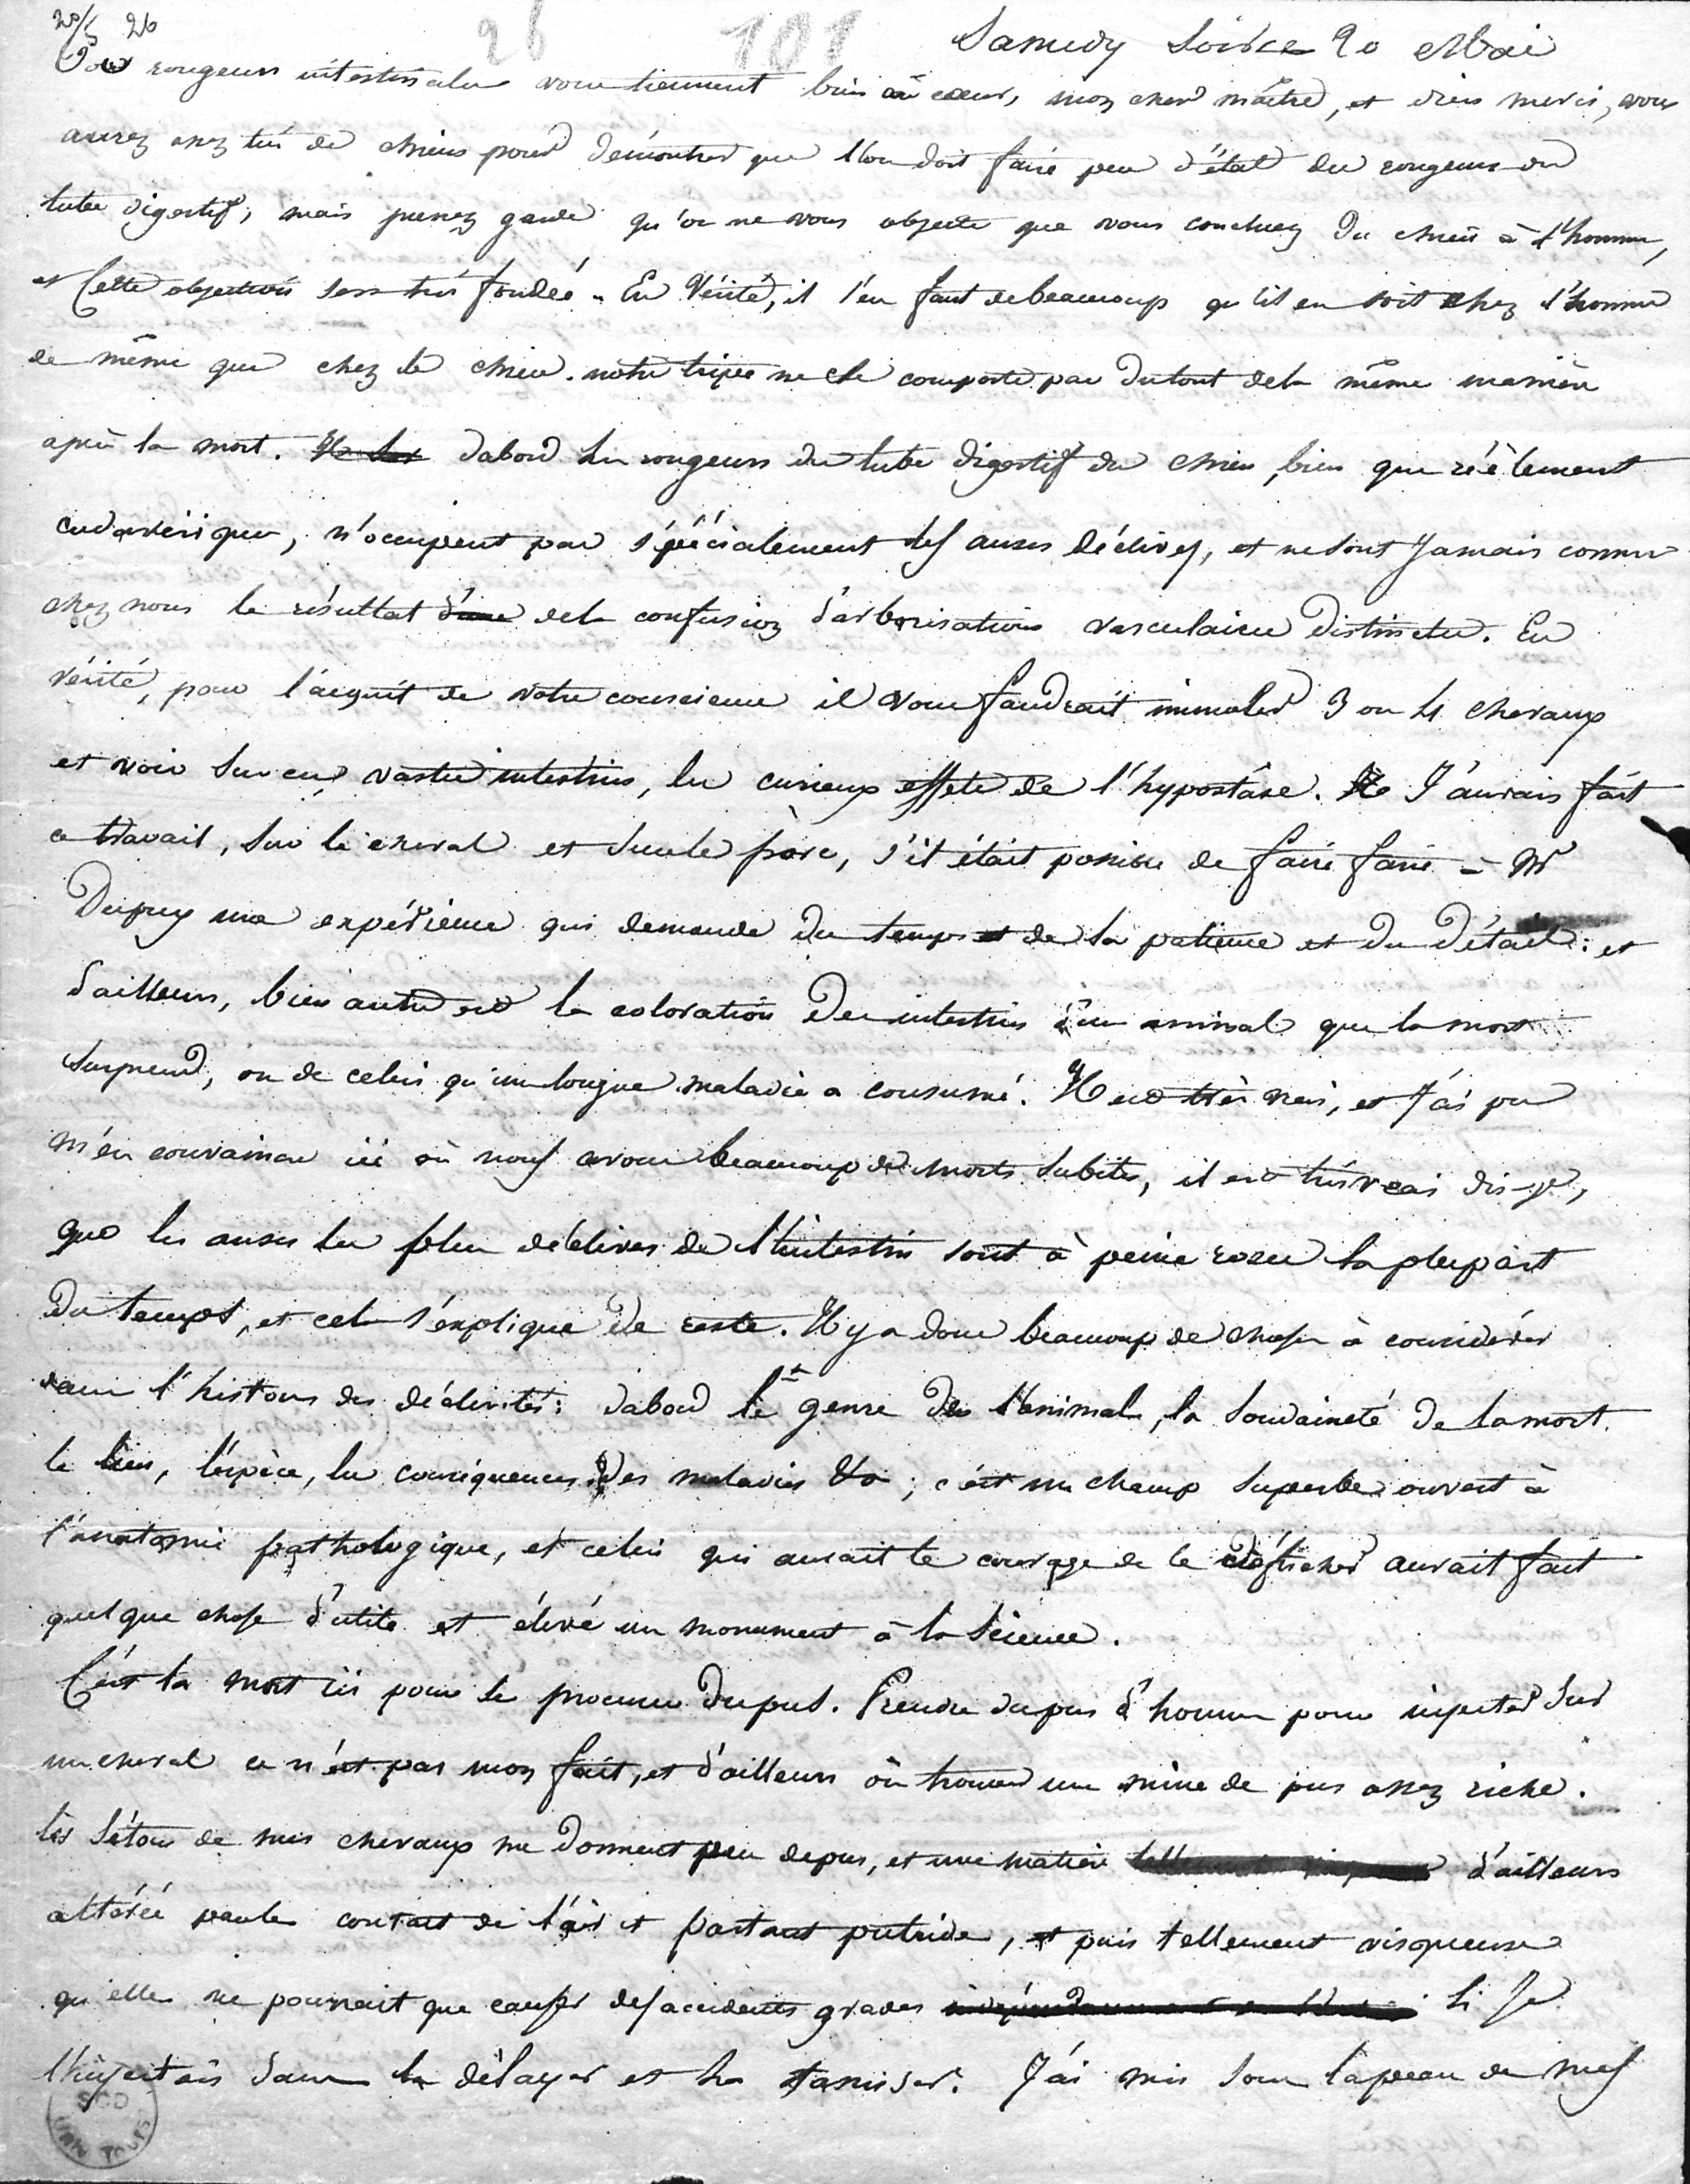 20/5 26
26 101 Samedy Soirée 20 Mai
Vos rougeurs intestinales vous tiennent bien au cœur, mon cher maître, et dieu merci, vous
aurez assez tué de chiens pour démontrer que l'on doit faire peu d'état des rougeurs du
tube digestif; mais prenez garde qu'on ne vous objecte que vous concluez du chien à l'homme,
et cette objection sera très fondée. En Vérité, il s'en faut de beaucoup qu'il en soit chez l'homme
de même que chez le chien. notre tripes ne se comporte pas du tout de la même manière
après la mort. dabord les rougeurs du tube digestif du chien, bien que réèlement
cadavériques, n'occupent pas spécialement les anses déclives, et ne sont jamais comme
chez nous le résultat d'une de la confusion d'arborisations vasculaires distinctes. En
vérité, pour l'acquit de votre conscience il vous faudrait immoler 3 ou 4 chevaux
et voir sur ces vastes intestins, les curieux effets de l'hypostase. J'aurais fait
ce travail, sur le cheval et sur le porc, s'il était possible de faire faire à Mr
Dupuy une expérience qui demande du temps et de la patience et du détail: et
d'ailleurs, bien autre est la coloration des intestins d'un animal que la mort
surprend, ou de celui qu'une longue maladie a consumé. Il est très vrai, et j'ai pu
m'en convaincre ici où nous avons beaucoup de morts subites, il est très vrai dis-je,
que les anses les plus déclives de l'intestin sont à peine rosées la plupart
du temps, et cela s'explique de reste. Il y a donc beaucoup de choses à considérer
dans l'histoire des déclivités: dabord le genre de l'animal, la soudaineté de la mort.
le lieu, l'espèce, les conséquences des maladies &a; c'est un champ superbe ouvert à
l'anatomie pathologique, et celui qui aurait le courage de le défricher aurait fait
quelque chose d'utile et élevé un monument à la science.
C'est la mort ici pour se procurer du pus. Prendre du pus d'homme pour injecter sur
un cheval ce n'est pas mon fait, et d'ailleurs où trouver une mine de pus assez riche.
les sétons de mes chevaux me donnent peu de pus, et une matière d'ailleurs
altérée par le contact de l'air et partant putride, et puis tellement visqueuse
qu'elle ne pourrait que causer des accidents graves si je
l'injectais sans la délayer et la tamiser. J'ai mis sous la peau de mes
SCD
UNIV TOURS